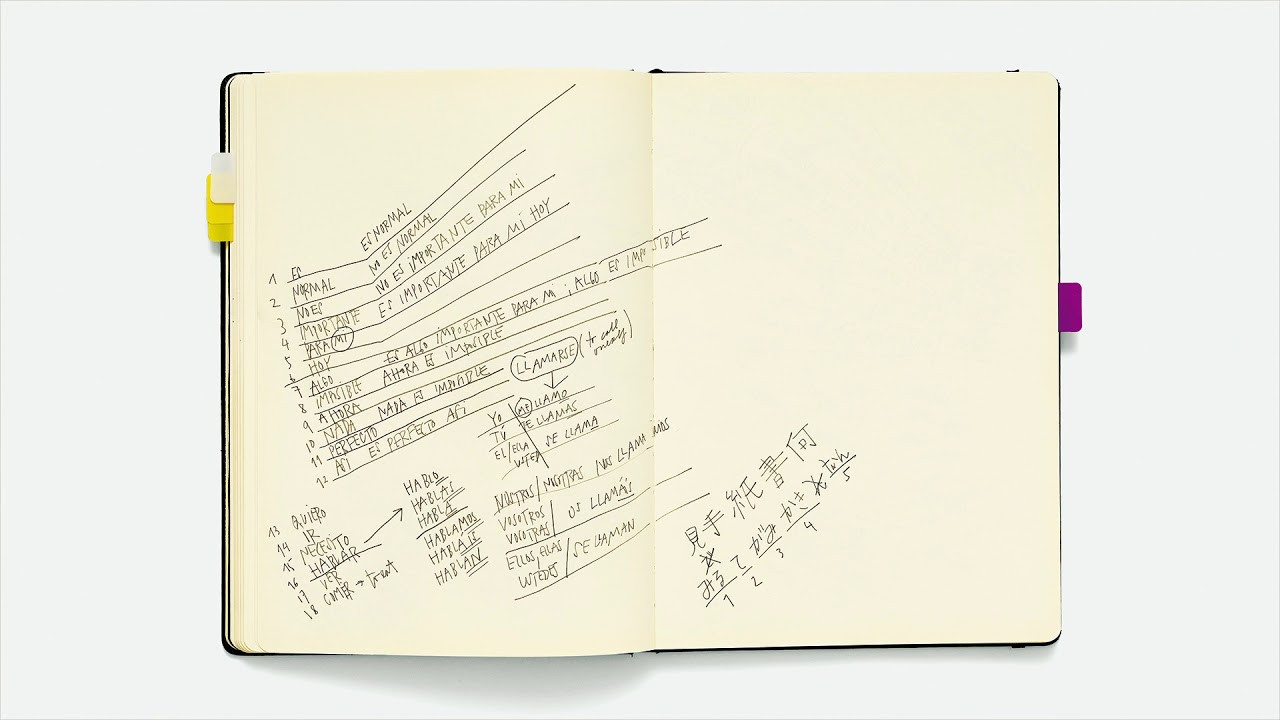 1 ES ES NORMAL
2 NORMAL ES NORMAL
3 NO ES NO ES IMPORTANTE PARA MI
4 IMPORTANTE ES IMPORTANTE PARA MI HOY
5 PARA MI
6 HOY ES ALGO IMPORTANTE PARA MI ; ALGO ES IMPOSIBLE
7 ALGO
8 IMPOSIBLE AHORA ES IMPOSIBLE
9 AHORA
10 NADA NADA ES IMPOSIBLE
11 PERFECTO
12 ASI ES PERFECTO ASI
LLAMARSE (to call
YO ME LLAMO
TU TE LLAMAS
EL/ELLA SE LLAMA
NOSTROS/NOSOTRAS NOS LLAMAMOS
VOSOTROS
VOSOTRAS OS LLAMÁIS
ELLOS, ELLAS
USTEDES SE LLAMAN
13 QUIERO
14 IR
15 NECESITO
16 HABLAR
17 VER
18 COMER → to eat
HABLO
HABLAS
HABLA
HABLAMOS
HABLAIS
HABLAN
見手紙書何
みる て がみ かき なに
1 2 3 4 5